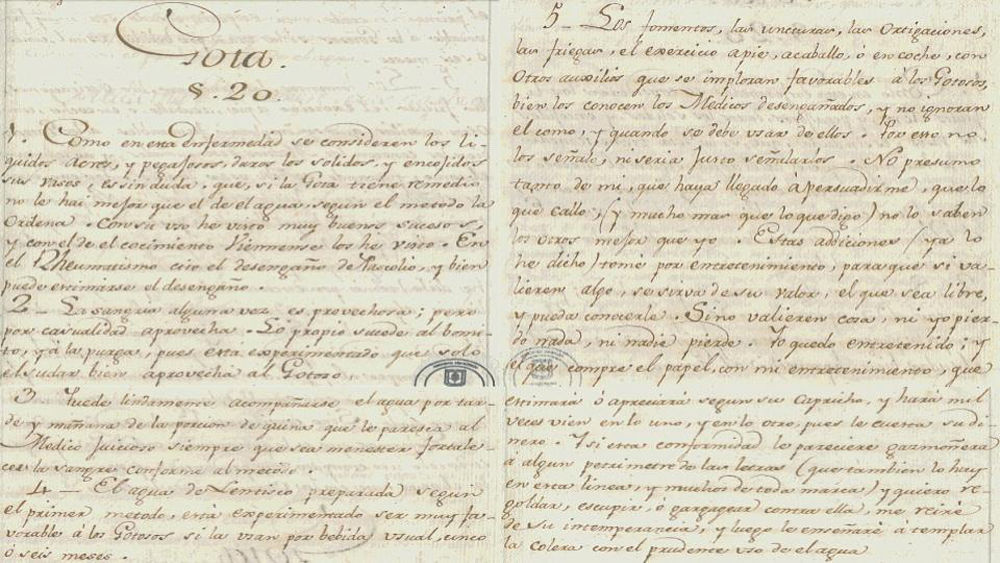 Gota.
§. 20.
1. Como en esta Enfermedad se consideren los li-
quidos acres, y pegajosos, duros los solidos, y encojidos
sus vasos, es sin duda, que, si la Gota tiene remedio
no le hai mejor que el de el agua segun el metodo la
Ordena. Con su uso he visto muy buenos sucesos,
y con el de el cocimiento Viennense los he visto. En
el Rheumatismo cito el desengaño de y bien
puede estimarse el desengaño.
2 – La sangria alguna vez es provechosa; pero
por casualidad aprovecha. Lo propio sucede al bomi-
to, y á la purga, pues está experimentado que solo
el sudar bien aprovecha al Gotoso.
3 Puede lindamente acompañarse el agua por tar-
de y mañana de la porcion de quina que le paresca al
Medico Juicioso siempre que sea menester fortale-
cer la sangre conforme al metodo.
4 – El agua de Lentisco preparada segun
el primer metodo, está experimentado ser muy fa-
vorable á los Gotosos si la usan por bebida usual, cinco
ó seis meses.
5 – Los fomentos, las uncturas, las Ortigaciones,
las friegas, el exercicio apie, acaballo, ó en coche, con
Otros auxilios que se imploran favorables á los Gotosos,
bien los conocen los Medicos desengañados, y no ignoran
el como, y quando se debe usar de ellos. Por esto no
los señalo, ni seria Justo señalarlos. No presumo
tanto de mi, que haya llegado á persuadirme, que lo
que callo, (y mucho mas que lo que digo) no lo saben
los otros mejor que yo. Estas addiciones (ya lo
he dicho) tomé por entretenimiento, para que si va-
lieren algo, se sirva de su valor, el que sea libre,
y pueda conocerle. Si no valieren cosa, ni yo pier-
do nada, ni nadie pierde. Yo quedo entretenido; y
el que compre el papel, con mi entretenimiento, que
estimará ó apreciará segun su capricho, y hará mil
veces vien en lo uno, y en lo otro, pues le cuesta su di-
nero. Y si esta conformidad le pareciere gazmoñera
á algun petrimetre de las letras (que tambien lo hay
en esta linea, y muchos de toda marca) y quiere re-
goldar, escupir, ó gargajear contra ella, me reiré
de su intemperancia, y luego le enseñaré á templar
la colera con el prudente uso de el agua